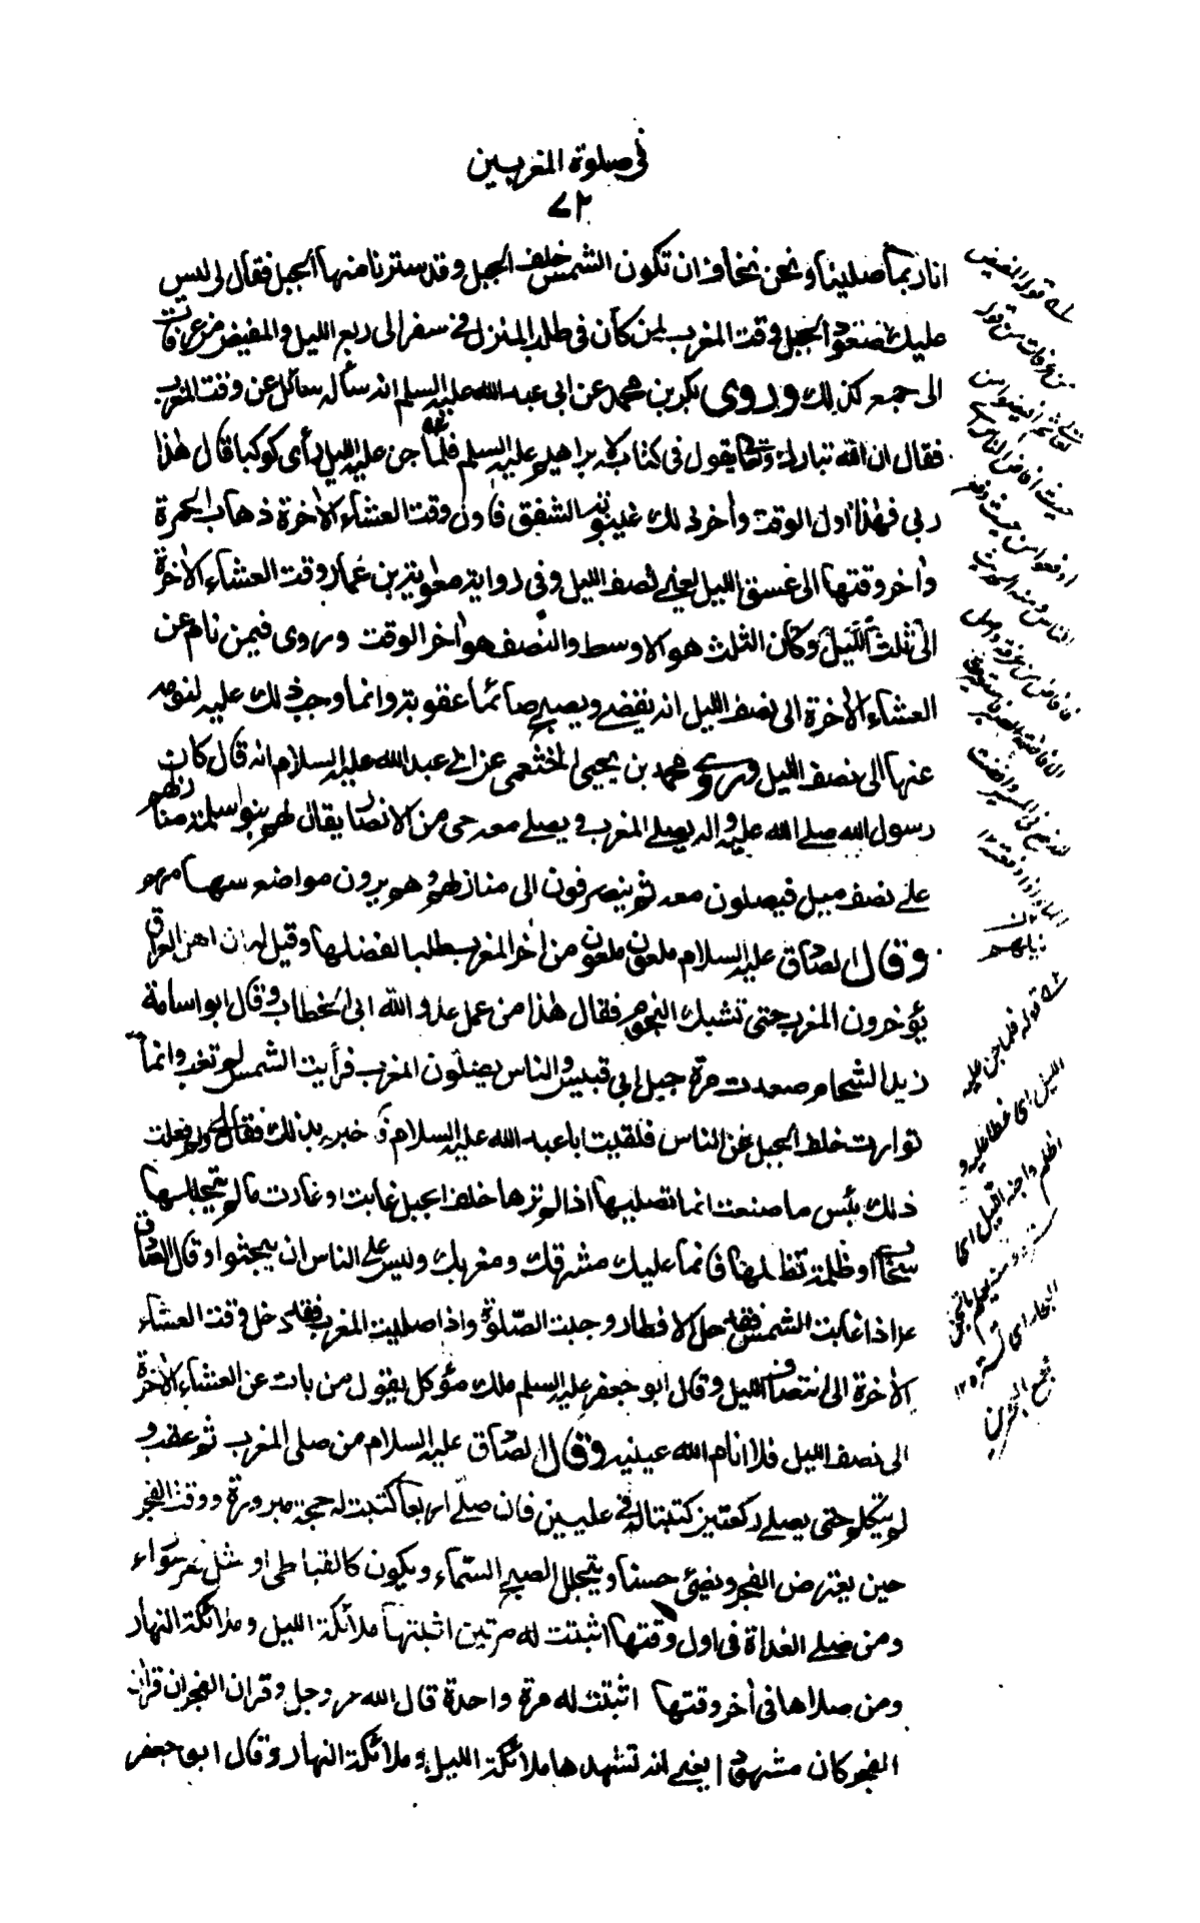 فى صلوة المغربين
٧٢
انا ربما صلينا ونحن نخاف ان تكون الشمس خلف الجبل وقد سترنا منها الجبل فقال لى ليس
عليك صعود الجبل وقت المغرب لمن كان فى طلب المنزل فى سفر الى ربع الليل والمفيض من عرفات
الى جمع كذلك وروى بكر بن محمد عن ابى عبد الله عليه السلم انه سأله سائل عن وقت المغرب
فقال ان الله تبارك وتعالى يقول فى كتابه لابراهيم عليه السلم فلما جن عليه الليل رأى كوكبا قال هذا
ربى فهذا اول الوقت وأخر ذلك غيبوبة الشفق فأول وقت العشاء الاخرة ذهاب الحمرة
وأخر وقتها الى غسق الليل يعنى نصف الليل وفى رواية معوية بن عمار وقت العشاء الاخرة
الى ثلث الليل وكأن الثلث هو الاوسط والنصف هو اخر الوقت وروى فيمن نام عن
العشاء الاخرة الى نصف الليل انه يقضى ويصبح صائما عقوبة وانما وجب ذلك عليه لنومه
عنها الى نصف الليل وروى محمد بن يحيى الخثعمى عن ابى عبد الله عليه السلام انه قال كان
رسول الله صلى الله عليه واله يصلى المغرب ويصلى معه حى من الانصار يقال لهم بنو سلمة منازلهم
على نصف ميل فيصلون معه ثم ينصرفون الى منازلهم وهم يرون مواضع سهامهم
وقال الصادق عليه السلام ملعون ملعون من اخر المغرب طلبا لفضلها وقيل له ان اهل العراق
يؤخرون المغرب حتى تشبك النجوم فقال هذا من عمل عدو الله ابى الخطاب وقال ابو اسامة
زيد الشحام صعدت مرة جبل ابى قبيس والناس يصلون المغرب فرأيت الشمس لم تغب وانما
توارت خلف الجبل عن الناس فلقيت ابا عبد الله عليه السلام فاخبرته بذلك فقال لى ولم فعلت
ذلك بئس ما صنعت انما تصليها اذا لم ترها خلف الجبل غابت او غارت ما لم يتجللها
سحاب او ظلمة تظلها فانما عليك مشرقك ومغربك وليس على الناس ان يبحثوا وقال الصادق
ع اذا غابت الشمس فقد حل الافطار ووجبت الصلوة واذا صليت المغرب فقد دخل وقت العشاء
الاخرة الى انتصاف الليل وقال ابو جعفر عليه السلم ملك مؤكل يقول من بات عن العشاء الاخرة
الى نصف الليل فلا انام الله عينيه وقال الصادق عليه السلام من صلى المغرب ثم عقب و
لم يتكلم حتى يصلى ركعتين كتبتا له فى عليين فان صلى اربعا كتبت له حجة مبرورة ووقت الفجر
حين يعترض الفجر ويضئ حسنا ويتجلل الصبح السماء ويكون كالقباطى او مثل نهر سوراء
ومن صلى الغداة فى اول وقتها اثبتت له مرتين اثبتتها ملائكة الليل وملائكة النهار
ومن صلاها فى أخر وقتها اثبتت له مرة واحدة قال الله عز وجل وقران الفجر ان قران
الفجر كان مشهودا يعنى انه تشهدها ملائكة الليل وملائكة النهار وقال ابو جعفر
قوله المفيض
من عرفات
قوله فلما جن عليه
الليل اى غطا عليه و
اظلم واجنه الليل اى
مجمع البحرين